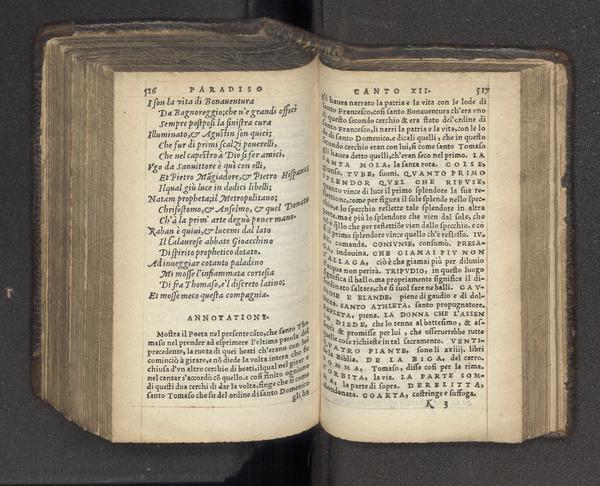 516 PARADISO
I son la vita di Bonauentura
Da Bagnoreggio; che n'e grandi offici
Sempre posposi la sinistra cura
Illuminato, & Agustin son quici;
Che fur di primi scalzi pouerelli,
Che nel capestro à Dio si fer amici.
Vgo da Sanuittore è quì con elli,
Et Pietro Mãgiadore, & Pietro Hispano
Ilqual giù luce in dodici libelli;
Natam propheta; il Metropolitano;
Chrisostomo, & Anselmo, & quel Donato
Ch'à la prim' arte degnò pener mano.
Raban è quiui, & lucemi dal lato
Il Calaurese abbate Gioacchino
Di spirito prophetico dotato.
Ad inueggiar cotanto paladino
Mi mosse l'infiammata cortesia
Di fra Thomaso, e'l discreto latino;
Et mosse meco questa compagnia.
ANNOTATIONE.
Mostra il Poeta nel presente cãto, che santo Tho
maso nel prender ad esprimere l'vltima parola del
precedente, la ruota di quei beati ch'erano con lui
cominciò à girare, e nõ diede la volta intera che fu
chiusa d'vn altro cerchio di beati, il qual nel girar e
nel cantar s'accordò cõ quello. e cosi finito ogniuno
di questi dua cerchi di dar la volta, finge che si come
santo Tomaso che fu del ordine di santo Dominico
gli ha
CANTO XII. 517
gli hauea narrato la patria e la vita con le lode di
santo Francesco, cosi santo Bonauentura ch'era vno
di questo secondo cerchio & era stato de l'ordine di
santo Francesco, li narri la patria e la vita, con le lo
de di santo Domenico. e dicali quelli, che in questo
secondo cerchio eran con lui, si come santo Tomaso
gli hauea detto quelli, ch'eran seco nel primo. LA
SANTA MOLA, la santa rota. COLSE,
giunse. TVBE, suoni. QVANTO PRIMO
SPLENDOR QVEL CHE RIFVSE,
quanto vince di luce il primo splendore la sua re-
flettione, come per figura il sole splende nello spec-
chio, e lo specchio reflette tale splendore in altra
parte, ma è più lo splendore che vien dal sole, che
quello che per reflettiõe vien dallo specchio. e co
il primo splendore vince quello ch'è reflesso. IV.
comanda. CONSVNSE, consumò. PRESA-
GA, indouina. CHE GIAMAI PIV NON
ALLAGA, ciò è che giamai più per dilutio
d'acqua non perirà. TRIPVDIO, in questo luogo
significa il ballo, ma propriamente significa il di-
ordinato saltare, che si suol fare ne balli. GAV-
DIOSE E BLANDE, piene di gaudio e di dol-
cezza. SANTO ATHLETA, santo propugnatore.
REPLETA, piena. LA DONNA CHE L'ASSEN
SO DIEDE, che lo tenne al battesimo, & as-
sentì & promisse per lui, che osseruerebbe tutte
quelle cose richieste in tal sacramento. VENTI-
QVATRO PIANTE, sono li xxiiij. libri
de la Biblia. DE LA BIGA, del carro.
TOMMA, Tomaso, disse cosi per la rima.
ORBITA, la via. LA PARTE SOM-
MA, la parte di sopra. DERELITTA,
abandonata. COARTA, costringe e suffoga.
K 3